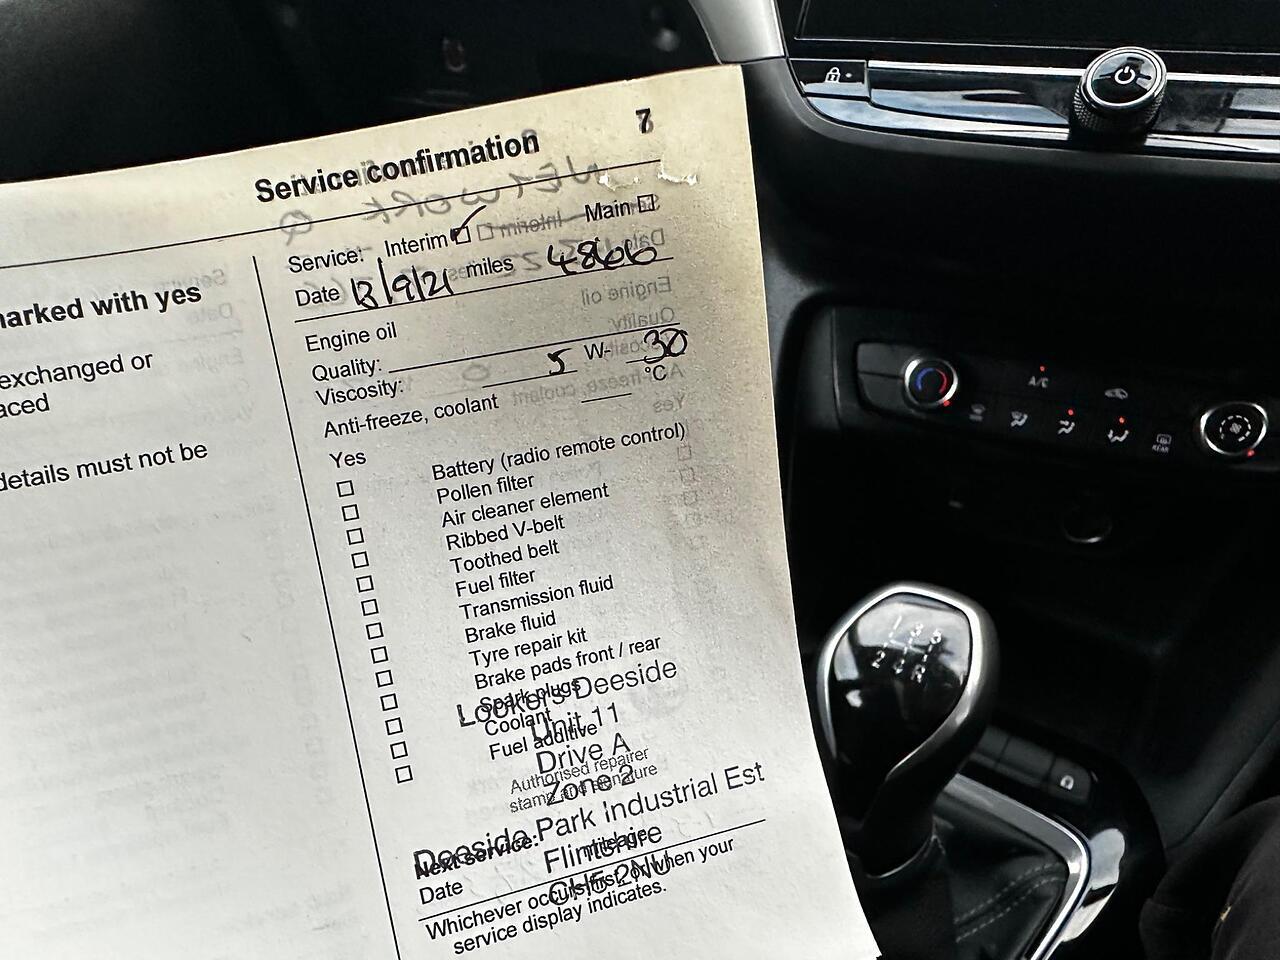 Service confirmation
7
marked with yes
exchanged or
details must not be
Service: Interim Main
Date 13/9/21 miles 48606
Engine oil
Quality:
Viscosity: 5 W- 30
Anti-freeze, coolant °C
Yes
Battery (radio remote control)
Pollen filter
Air cleaner element
Ribbed V-belt
Toothed belt
Fuel filter
Transmission fluid
Brake fluid
Tyre repair kit
Brake pads front / rear
Spark plugs
Coolant
Fuel additive
Authorised repairer
stamp and signature
Lookers Deeside
Unit 11
Drive A
Zone 2
Deeside Park Industrial Est
Flintshire
CH5 2NU
Next service: mileage
Date
Whichever occurs first or when your
service display indicates.
A/C
REAR
1 3 5
2 4 R